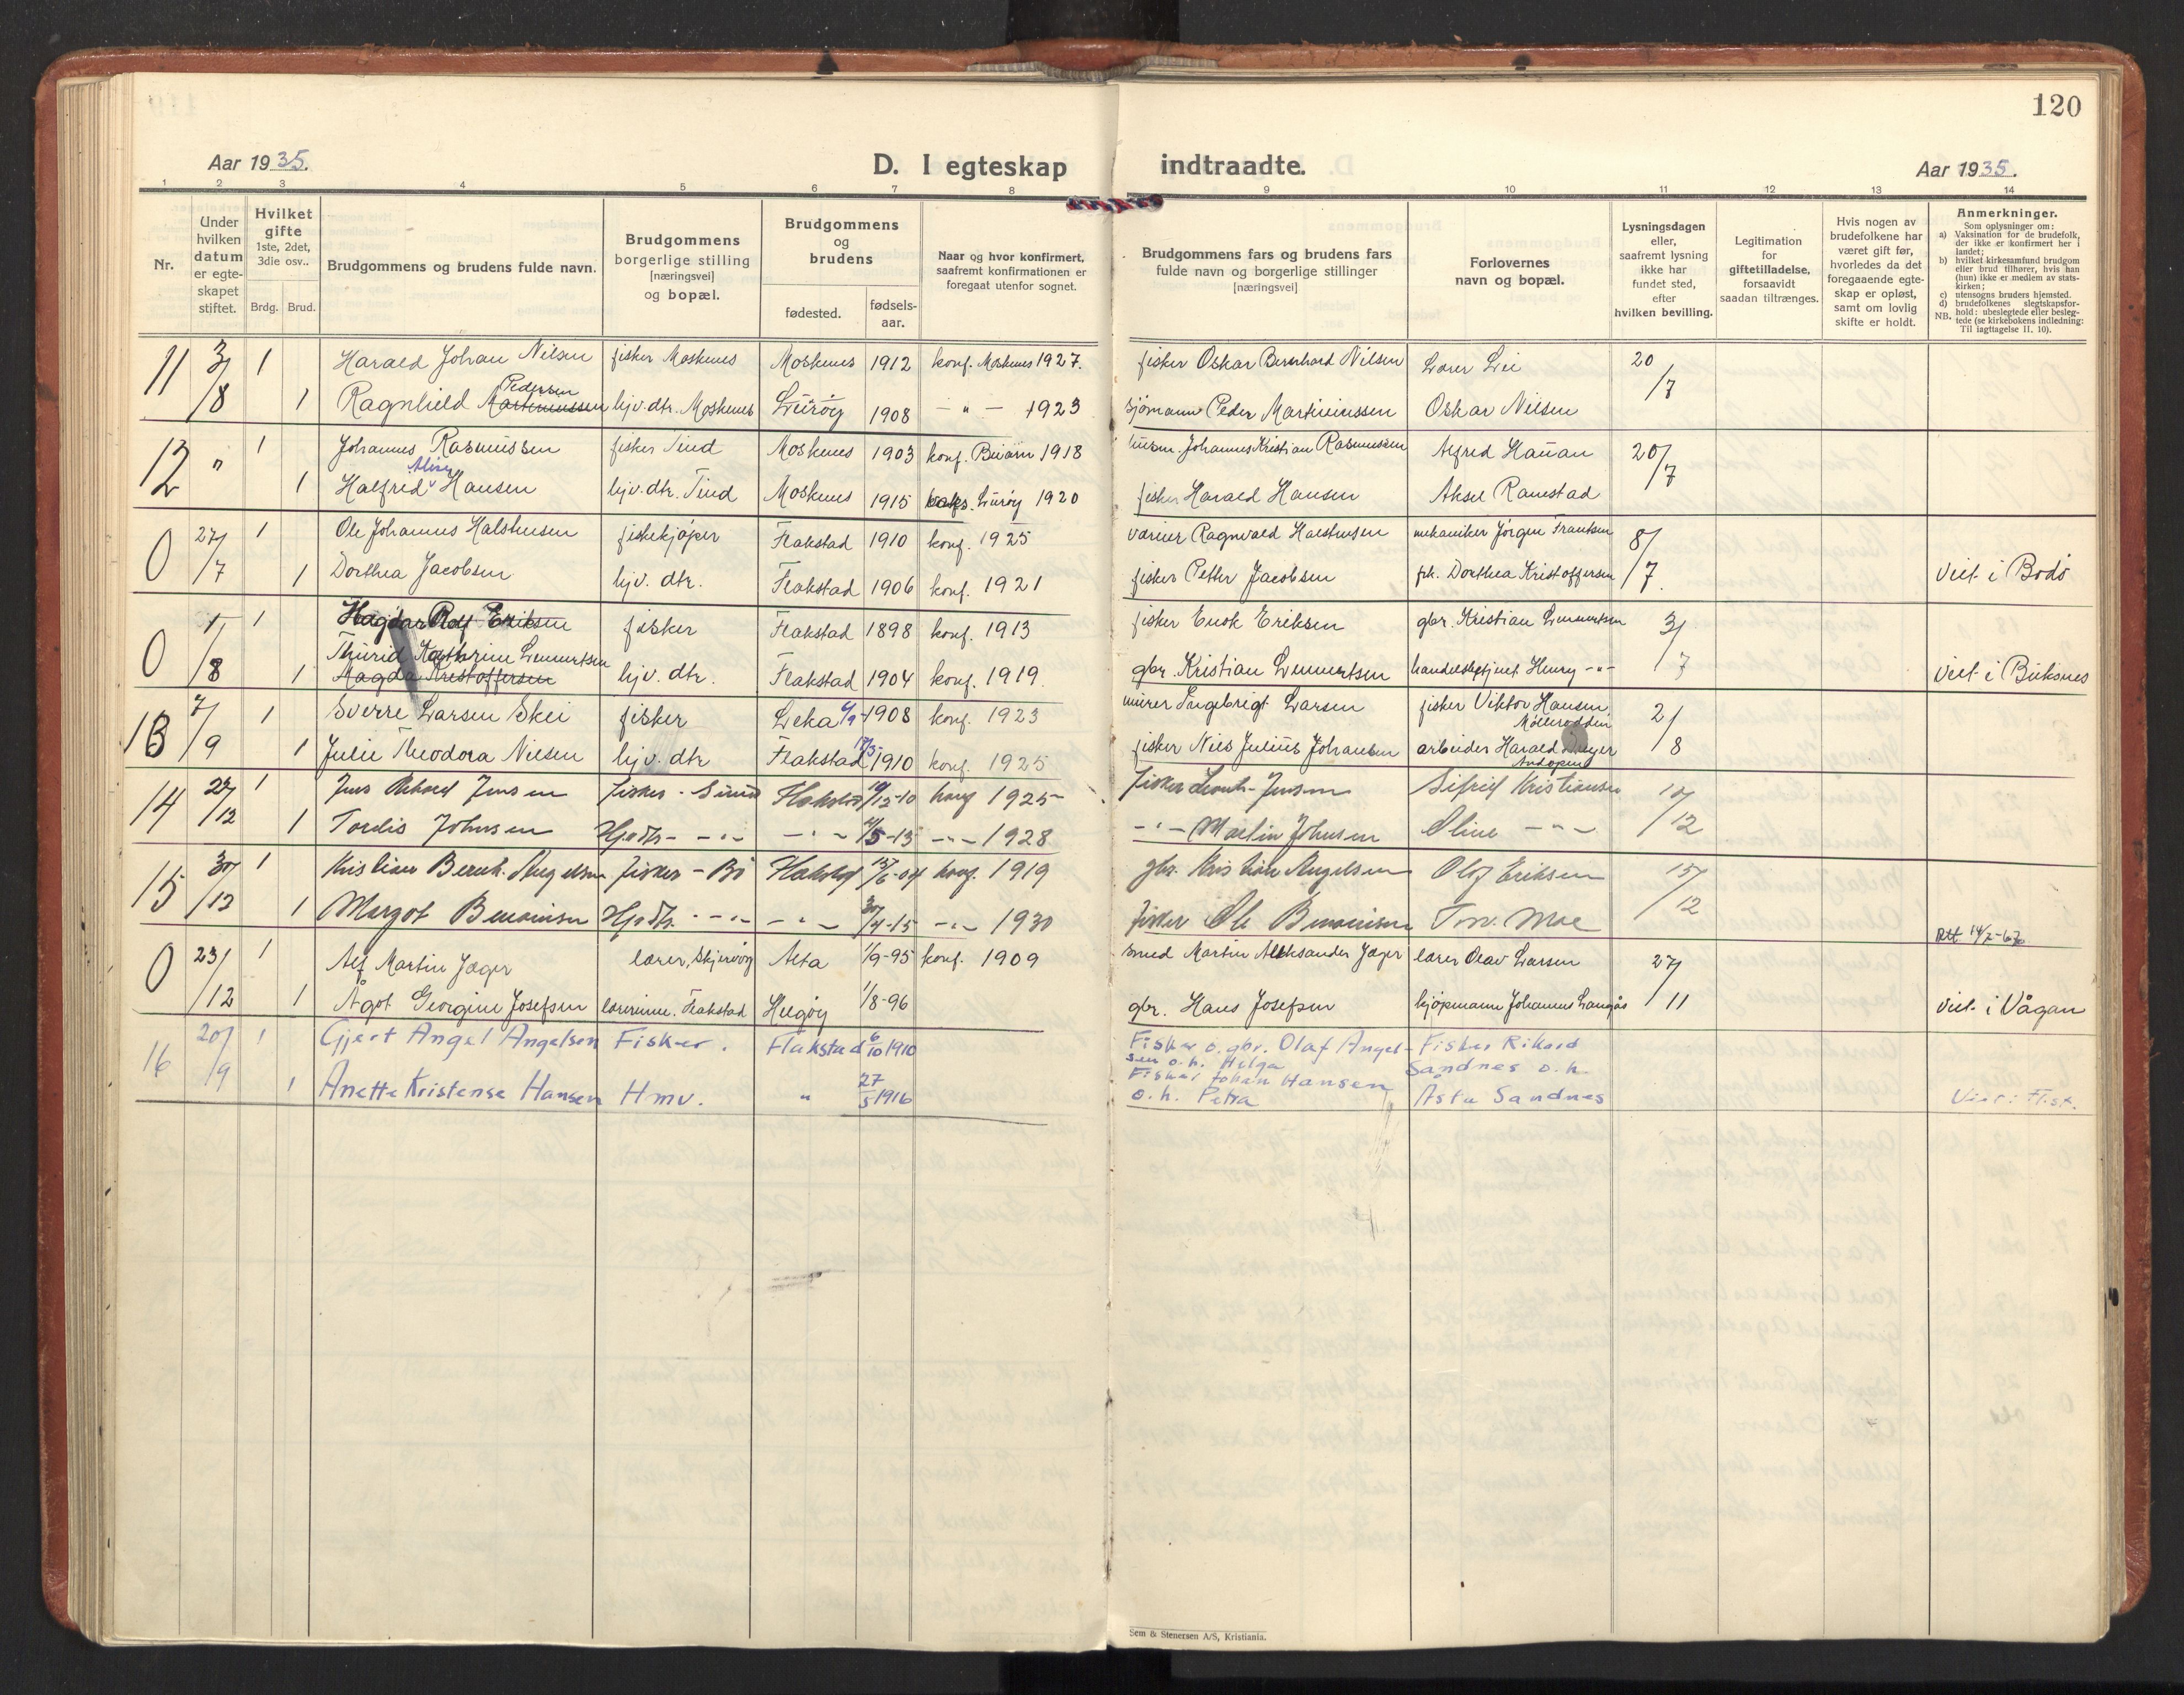 120
Aar 1935.
D. I egteskap indtraadte.
Aar 1935.
1 2 3 4 5 6 7 8 9 10 11 12 13 14
Nr.
Under hvilken datum er egte-skapet stiftet.
Hvilket gifte
1ste, 2det, 3die osv..
Brdg. Brud.
Brudgommens og brudens fulde navn.
Brudgommens
borgerlige stilling
[næringsvei]
og bopæl.
Brudgommens
og
brudens
fødested.
fødsels-aar.
Naar og hvor konfirmert,
saafremt konfirmationen er
foregaat utenfor sognet.
Brudgommens fars og brudens fars
fulde navn og borgerlige stillinger
[næringsvei]
Forlovernes
navn og bopæl.
Lysningsdagen
eller,
saafremt lysning
ikke har
fundet sted,
efter
hvilken bevilling.
Legitimation
for
giftetilladelse,
forsaavidt
saadan tiltrænges.
Hvis nogen av
brudefolkene har
været gift før,
hvorledes da det
foregaaende egte-
skap er opløst,
samt om lovlig
skifte er holdt.
Anmerkninger.
Som oplysninger om:
a) Vaksination for de brudefolk,
der ikke er konfirmert her i
landet;
b) hvilket kirkesamfund brudgom
eller brud tilhører, hvis han
(hun) ikke er medlem av stats-
kirken;
c) utensogns bruders hjemsted.
d) brudefolkenes slegtskapsfor-
NB. hold: ubeslegtede eller besleg-
tede (se kirkebokens indledning:
Til iagttagelse II, 10).
11 3/8 1 Harald Johan Nilsen fisker Moskenes Moskenes 1912 konf. Moskenes 1927. fisker Oskar Bernhard Nilsen Lærer Lei 20/7
Pedersen
1 Ragnhild Martinussen hjv. dtr. Moskenes Lurøy 1908 – " – 1923 sjømann Peder Martinussen Oskar Nilsen
12 " 1 Johannes Rasmussen fisker Tind Moskenes 1903 konf. Beiarn 1918 husm. Johannes Kristian Rasmussen Alfred Hauan 20/7
1 Halfred Hansen hjv. dtr. Tind Moskenes 1915 Lurøy 1920 fisker Harald Hansen Aksel Ramstad
0 27/7 1 Ole Johannes Halstensen fiskekjøper Flakstad 1910 konf. 1925 Ragnvald Halstensen mekaniker Jørgen Frantsen 8/7
1 Dorthea Jacobsen hjv. dtr. Flakstad 1906 konf. 1921 fisker Petter Jacobsen frk. Dorthea Kristoffersen viet i Bodø
0 1/8 1 Rolf Eriksen fisker Flakstad 1898 konf. 1913 fisker Enok Eriksen gbr. Kristian Lennertsen 3/7
Thurid Kathrine Lennertsen
1 Magda Kristoffersen hjv. dtr. Flakstad 1904 konf. 1919. gbr. Kristian Lennertsen handelsbetjent Henry -"- viet i Buksnes
13 7/9 1 Sverre Larsen Skei fisker Leka 1908 konf. 1923 murer Ingebrigt Larsen fisker Viktor Hansen 2/8
Mølleodden
1 Julie Theodora Nilsen hjv. dtr Flakstad 17/5 1910 konf. 1925 fisker Nils Julius Johansen arbeider Harald
14 26/12 1 Jens Jensen Fisker - Sund Flakstad 10/12-10 konf 1925 Fisker Jensen Sifrid Kristiansen 10/12
1 Tordis Johnsen Hjdtr - " - - " - /5-13 - " - 1928 - " - Martin Johnsen Oline - " -
15 30/12 1 Kristian Bernh. Angelsen fisker - Bø Flakstad 15/6-04 konf. 1919 gbr. Kristian Angelsen Olaf Eriksen 15/12
1 Margot Benoninsen Hjdtr. - " - - " - 30/4-15 - " - 1930 Fisker Ole Benoninsen Torv. Moe
Att 14/2-62
0 23/12 1 Alf Martin Jæger lærer, Skjervøy Alta 1/9-95 konf. 1909 smed Martin Aleksander Jæger lærer Olav Larsen 27/11
1 Ågot Georgine Josefsen lærerinne. Flakstad Helgøy 1/8-96 gbr. Hans Josefsen kjøpmann Johannes Langås viet i Vågan
16 20/9 1 Gjert Angel Angelsen Fisker. Flakstad 6/10 1910 Fisker o. gbr. Olaf Angel- Fisker Rikard
sen o. h. Helga Sandnes o. h.
1 Anette Kristense Hansen Hmv. " 27/5 1916 Fisker Johan Hansen
o. h. Petra Asta Sandnes Viet i Flst.
Sem & Stenersen A/S, Kristiania.